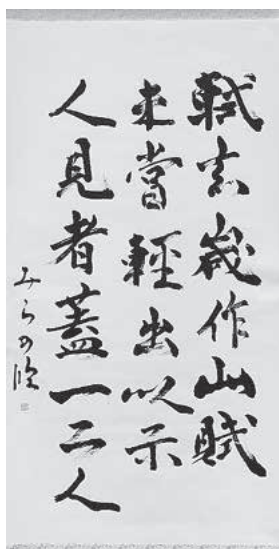 軾去歲作此賦
未嘗輕出以示
人見者蓋一二人
臨